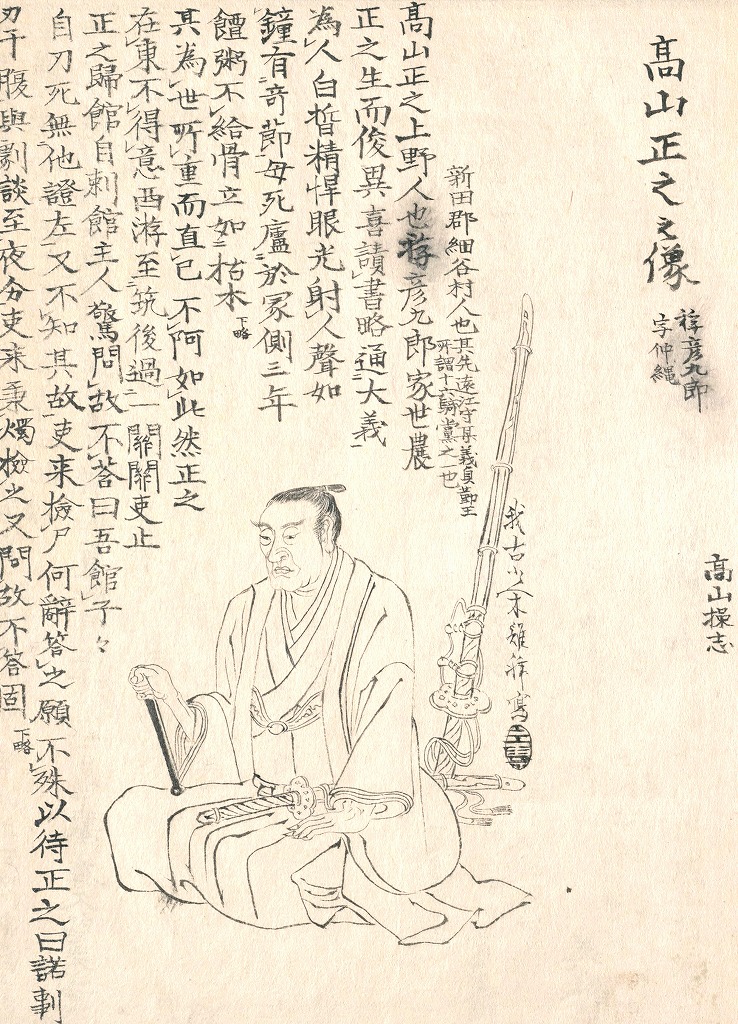 高山正之之像
稱彦九郎
字仲縄
高山操志
高山正之上野人也稱彦九郎家世農
新田郡細谷村人也其先遠江守某義貞勤王
所謂十六騎黨之一也
正之生而俊異喜讀書略通大義
為人白皙精悍眼光射人聲如
鐘有奇節母死廬於冢側三年
饘粥不給骨立如枯木下略
其為世所重而直己不阿如此然正之
在東不得意西游至筑後過一關關吏止
正之歸館自刺館主人驚問故不答曰吾館子々
自刀死無他證左又不知其故吏来檢尸何辭答之願不殊以待正之曰諾剚
刃于腹與劇談至夜分吏来秉燭檢之又問故不答固下略
我古山人木雞
寫